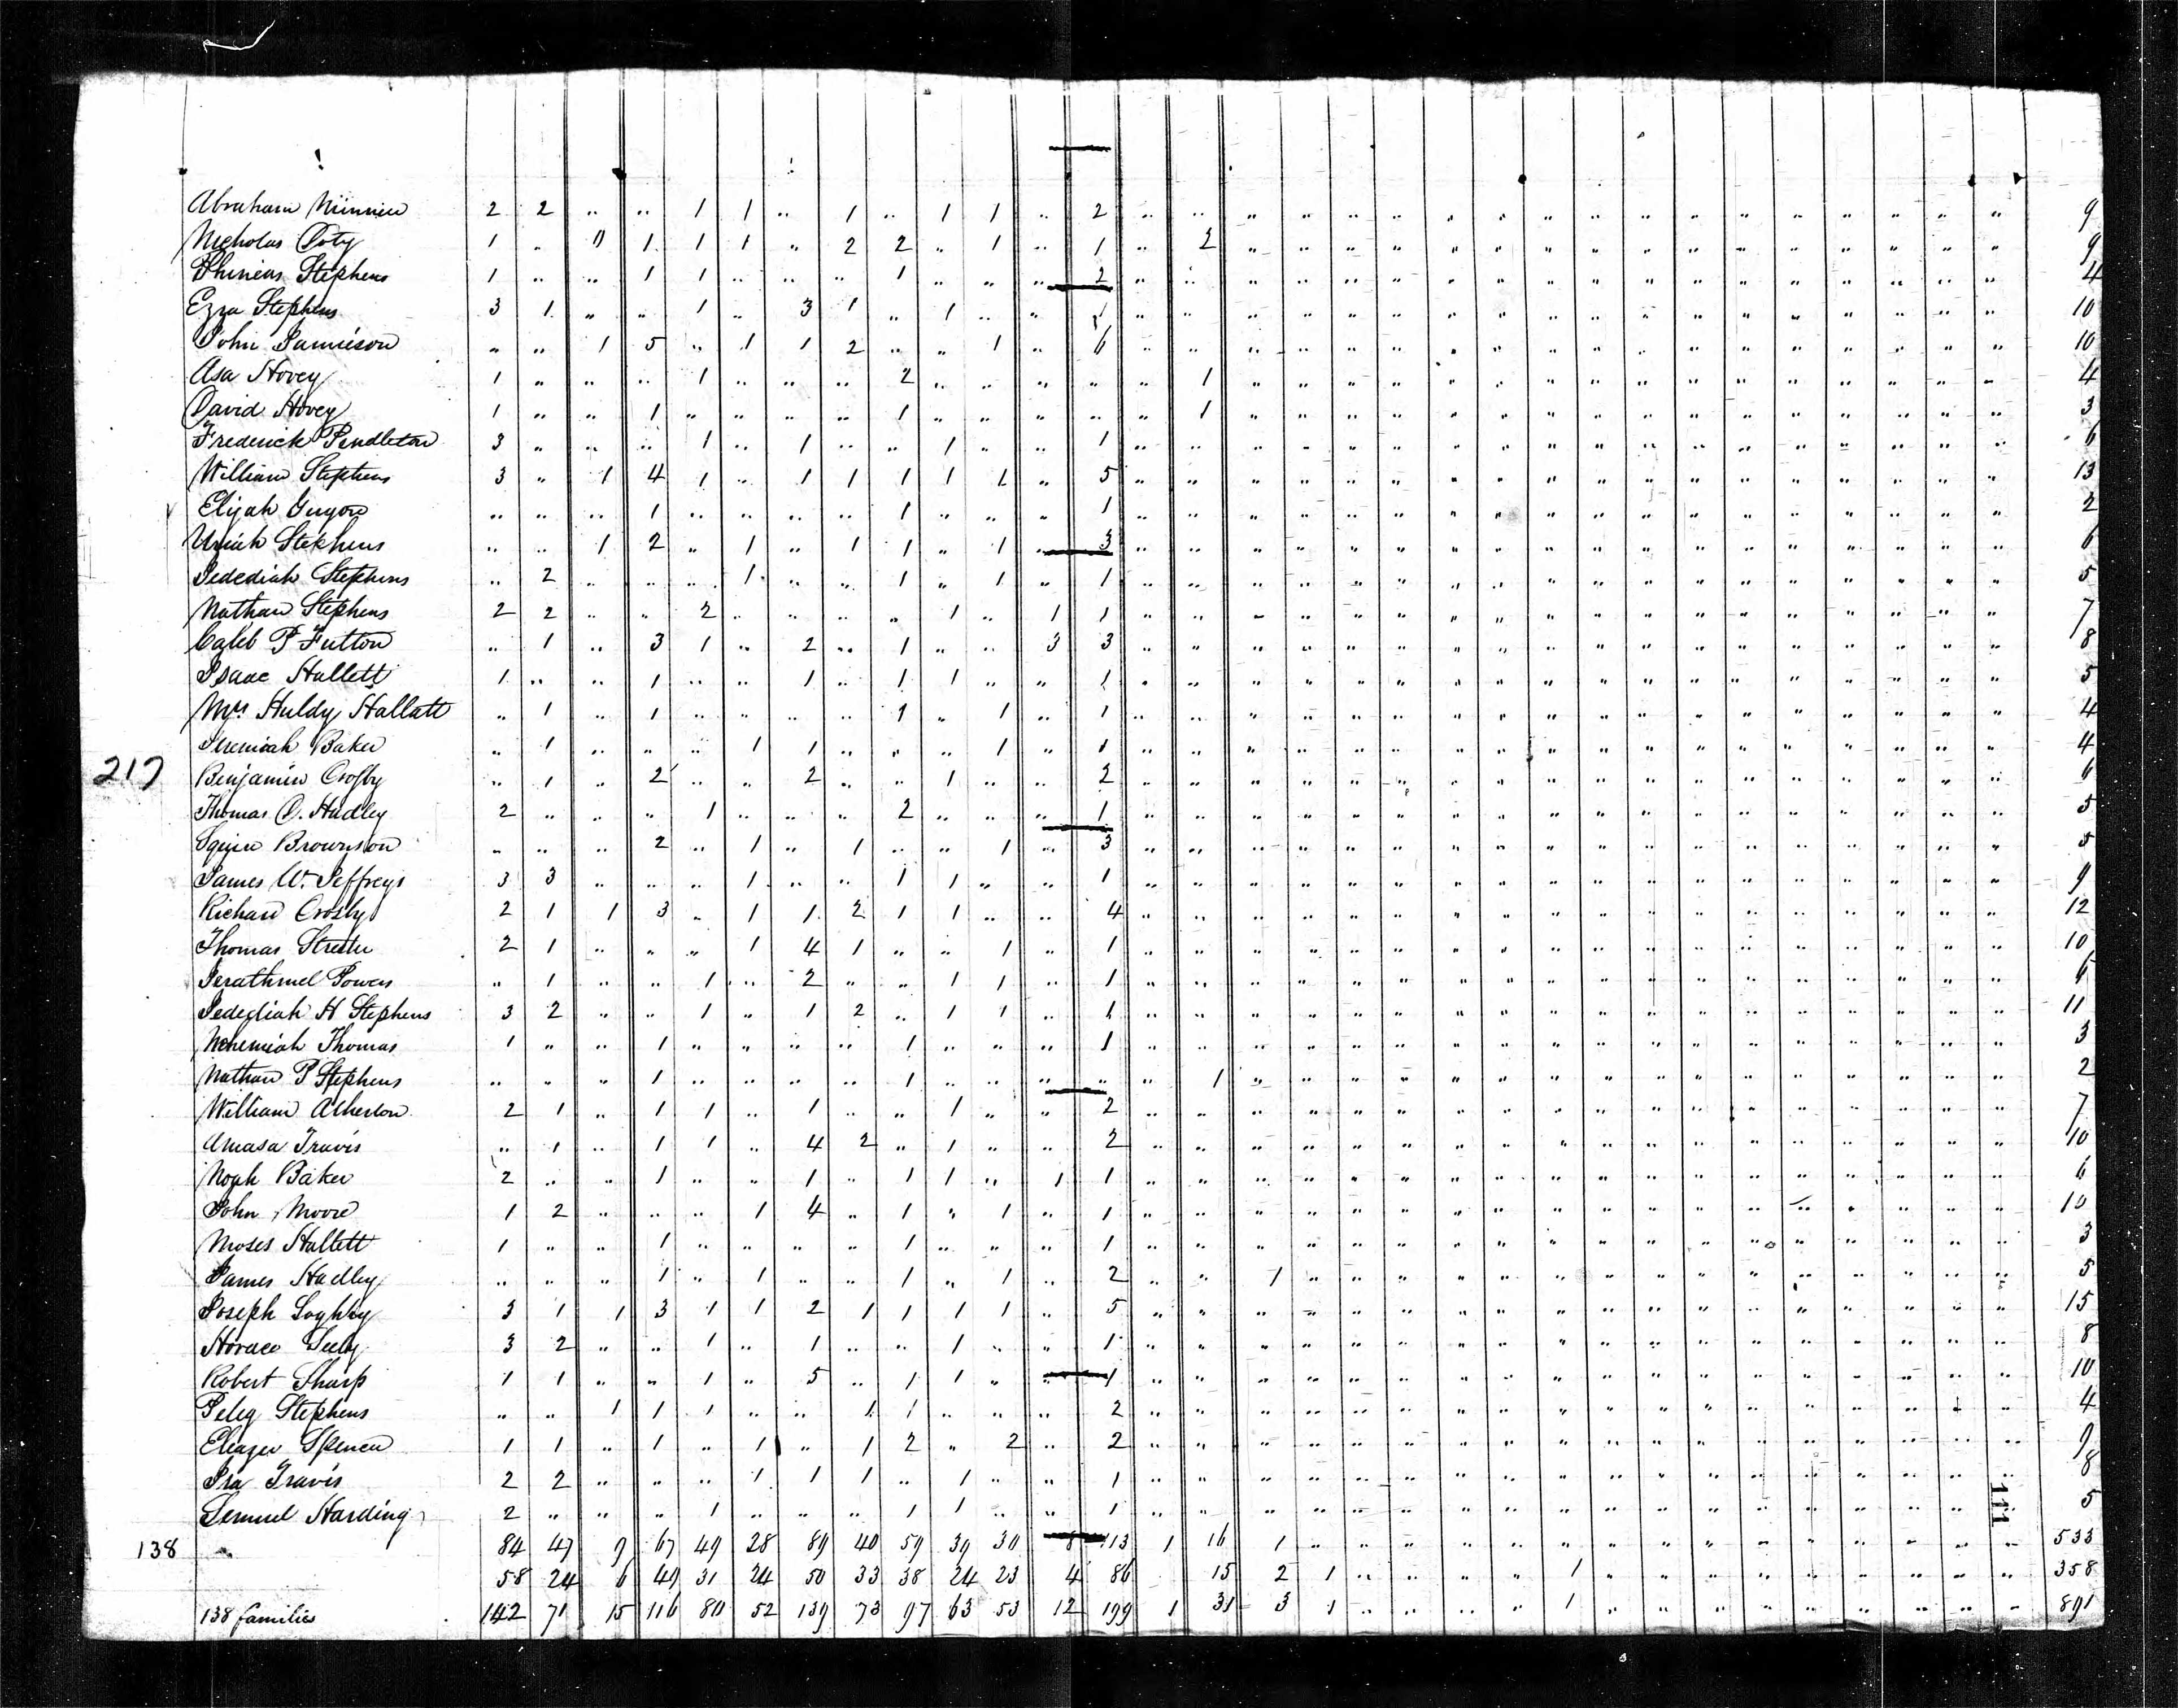 Abraham Minnier 2 2 .. .. 1 1 .. 1 .. 1 1 .. 2 .. .. .. .. .. .. .. .. .. .. .. .. .. .. .. .. .. .. 9
Nicholas Doty 1 .. 1 1 1 .. 2 2 .. 1 .. 1 .. 2 .. .. .. .. .. .. .. .. .. .. .. .. .. .. .. .. 9
Phineas Stephens 1 .. .. 1 1 .. .. .. 1 .. .. .. 2 .. .. .. .. .. .. .. .. .. .. .. .. .. .. .. .. .. .. 4
Ezra Stephens 3 1 .. .. 1 .. 3 1 .. 1 .. .. 1 .. .. .. .. .. .. .. .. .. .. .. .. .. .. .. .. .. .. 10
John Jamieson .. .. 1 5 .. 1 1 2 .. .. 1 .. 6 .. .. .. .. .. .. .. .. .. .. .. .. .. .. .. .. .. .. 10
Asa Hovey 1 .. .. .. 1 .. .. .. 2 .. .. .. .. .. 1 .. .. .. .. .. .. .. .. .. .. .. .. .. .. .. .. 4
David Hovey 1 .. .. 1 .. .. .. .. 1 .. .. .. .. .. 1 .. .. .. .. .. .. .. .. .. .. .. .. .. .. .. .. 3
Frederick Pendleton 3 .. .. .. 1 .. 1 .. .. 1 .. .. 1 .. .. .. .. .. .. .. .. .. .. .. .. .. .. .. .. .. .. 6
William Stephens 3 .. 1 4 1 .. 1 1 1 1 1 .. 5 .. .. .. .. .. .. .. .. .. .. .. .. .. .. .. .. .. .. 13
Elijah Guyon .. .. .. 1 .. .. .. .. 1 .. .. .. 1 .. .. .. .. .. .. .. .. .. .. .. .. .. .. .. .. .. .. 2
Uriah Stephens .. .. 1 2 .. 1 .. 1 1 .. 1 .. 3 .. .. .. .. .. .. .. .. .. .. .. .. .. .. .. .. .. .. 6
Jedediah Stephens .. 2 .. .. .. 1 .. .. 1 .. 1 .. 1 .. .. .. .. .. .. .. .. .. .. .. .. .. .. .. .. .. .. 5
Nathan Stephens 2 2 .. .. 2 .. .. .. .. 1 .. 1 1 .. .. .. .. .. .. .. .. .. .. .. .. .. .. .. .. .. .. 7
Caleb P Fulton .. 1 .. 3 1 .. 2 .. 1 .. .. 3 3 .. .. .. .. .. .. .. .. .. .. .. .. .. .. .. .. .. .. 8
Isaac Hallett 1 .. .. 1 .. .. 1 .. 1 1 .. .. 1 .. .. .. .. .. .. .. .. .. .. .. .. .. .. .. .. .. .. 5
Mrs Huldy Hallatt .. 1 .. 1 .. .. .. .. 1 .. 1 .. 1 .. .. .. .. .. .. .. .. .. .. .. .. .. .. .. .. .. .. 4
Jeremiah Baker .. 1 .. .. .. 1 1 .. .. .. 1 .. 1 .. .. .. .. .. .. .. .. .. .. .. .. .. .. .. .. .. .. 4
217 Benjamin Crosby .. 1 .. 2 .. .. 2 .. .. 1 .. .. 2 .. .. .. .. .. .. .. .. .. .. .. .. .. .. .. .. .. .. 6
Thomas D. Hadley 2 .. .. .. 1 .. .. .. 2 .. .. .. 1 .. .. .. .. .. .. .. .. .. .. .. .. .. .. .. .. .. .. 5
Squire Brownson .. .. .. 2 .. 1 .. 1 .. .. 1 .. 3 .. .. .. .. .. .. .. .. .. .. .. .. .. .. .. .. .. .. 5
James W. Jeffreys 3 3 .. .. .. 1 .. .. 1 1 .. .. 1 .. .. .. .. .. .. .. .. .. .. .. .. .. .. .. .. .. .. 9
Richard Crosby 2 1 1 3 .. 1 1 2 1 1 .. .. 4 .. .. .. .. .. .. .. .. .. .. .. .. .. .. .. .. .. .. 12
Thomas Streeter 2 1 .. .. .. 1 4 1 .. .. 1 .. 1 .. .. .. .. .. .. .. .. .. .. .. .. .. .. .. .. .. .. 10
Jerathmel Powers .. 1 .. .. 1 .. 2 .. .. 1 1 .. 1 .. .. .. .. .. .. .. .. .. .. .. .. .. .. .. .. .. .. 6
Jedediah H Stephens 3 2 .. .. 1 .. 1 2 .. 1 1 .. 1 .. .. .. .. .. .. .. .. .. .. .. .. .. .. .. .. .. .. 11
Nehemiah Thomas 1 .. .. 1 .. .. .. .. 1 .. .. .. 1 .. .. .. .. .. .. .. .. .. .. .. .. .. .. .. .. .. .. 3
Nathan P Stephens .. .. .. 1 .. .. .. .. 1 .. .. .. .. .. 1 .. .. .. .. .. .. .. .. .. .. .. .. .. .. .. .. 2
William Atherton 2 1 .. 1 1 .. 1 .. .. 1 .. .. 2 .. .. .. .. .. .. .. .. .. .. .. .. .. .. .. .. .. .. 7
Amasa Travis .. 1 .. 1 1 .. 4 2 .. 1 .. .. 2 .. .. .. .. .. .. .. .. .. .. .. .. .. .. .. .. .. .. 10
Noah Baker 2 .. .. 1 .. .. 1 .. 1 1 .. 1 1 .. .. .. .. .. .. .. .. .. .. .. .. .. .. .. .. .. .. 6
John Moore 1 2 .. .. .. 1 4 .. 1 .. 1 .. 1 .. .. .. .. .. .. .. .. .. .. .. .. .. .. .. .. .. .. 10
Moses Hallett 1 .. .. 1 .. .. .. .. 1 .. .. .. 1 .. .. .. .. .. .. .. .. .. .. .. .. .. .. .. .. .. .. 3
James Hadley .. .. .. 1 .. 1 .. .. 1 .. 1 .. 2 .. .. 1 .. .. .. .. .. .. .. .. .. .. .. .. .. .. .. 5
Joseph Loghby 3 1 1 3 1 1 2 1 1 1 1 .. 5 .. .. .. .. .. .. .. .. .. .. .. .. .. .. .. .. .. .. 15
Horace Seely 3 2 .. .. 1 .. 1 .. .. 1 .. .. 1 .. .. .. .. .. .. .. .. .. .. .. .. .. .. .. .. .. .. 8
Robert Sharp 1 1 .. .. 1 .. 5 .. 1 1 .. .. 1 .. .. .. .. .. .. .. .. .. .. .. .. .. .. .. .. .. .. 10
Peleg Stephens .. .. 1 1 1 .. .. 1 1 .. .. .. 2 .. .. .. .. .. .. .. .. .. .. .. .. .. .. .. .. .. .. 4
Eleazer Spencer 1 1 .. 1 .. 1 .. 1 2 .. 2 .. 2 .. .. .. .. .. .. .. .. .. .. .. .. .. .. .. .. .. .. 9
Ira Travis 2 2 .. .. .. 1 1 1 .. 1 .. .. 1 .. .. .. .. .. .. .. .. .. .. .. .. .. .. .. .. .. .. 8
Lemuel Harding 2 .. .. .. 1 .. .. .. 1 1 .. .. 1 .. .. .. .. .. .. .. .. .. .. .. .. .. .. .. .. .. .. 5
111
138 84 47 9 67 49 28 89 40 59 39 30 8 113 1 16 1 .. .. .. .. .. .. .. .. .. .. .. .. .. .. .. 533
58 24 6 49 31 24 50 33 38 24 23 4 86 15 2 1 .. .. .. .. 1 .. .. .. .. .. .. .. .. .. 358
138 families 142 71 15 116 80 52 139 73 97 63 53 12 199 1 31 3 1 .. .. .. .. 1 .. .. .. .. .. .. .. .. .. 891